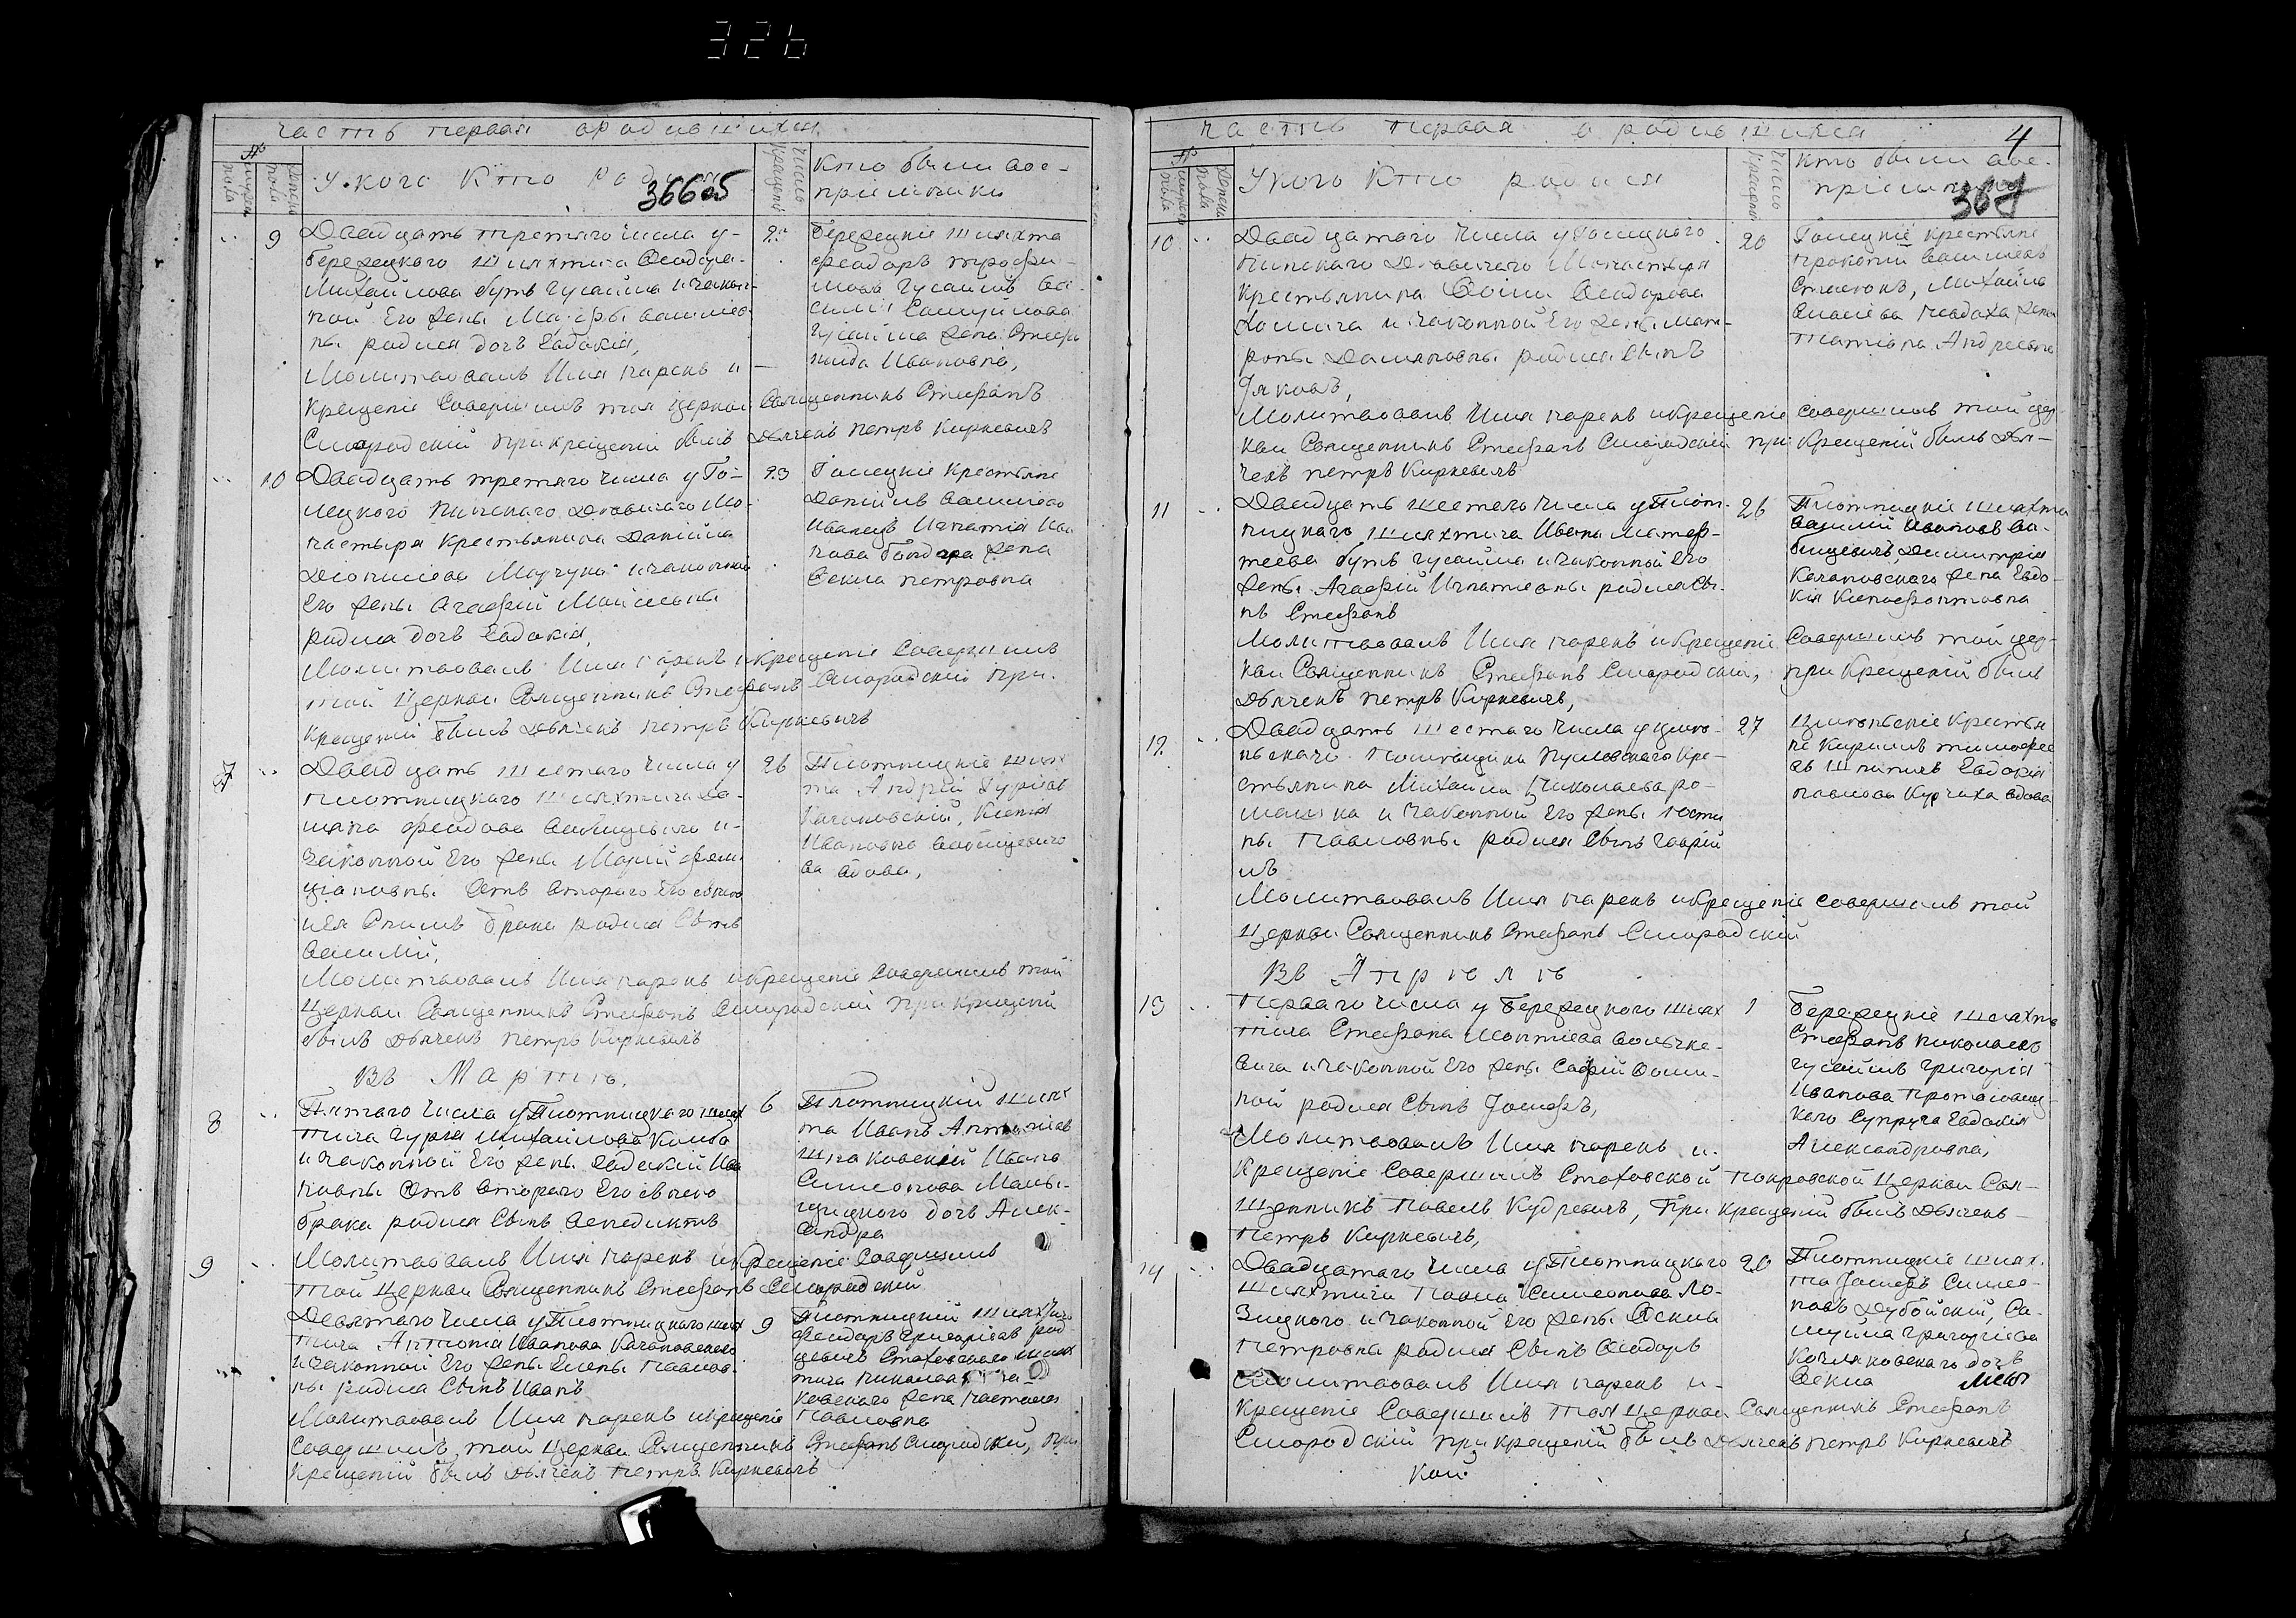 326
часть первая о родившихся
№
мужеска пола
женска пола
У кого Кто Родился
36605
число крещенія
Кто были вос-
пріемники
9
Двадцать третяго Числа у
Бережецкого Шляхтича Феодора
Михайлова Бутъ Гусаима и закон-
ной Его жены Мавры Василіев-
ны родися дочь Евдокія,
Молитвовалъ Имя нарекъ и
Крещеніе Совершилъ тоя Церкви Священникъ Стефанъ
Смородскій при крещеніи былъ Дьячекъ Петръ Киркевичъ
Бережецкіе Шляхта
Феодоръ трофи-
мовъ Гусаимъ Ва-
силія Самуйлова
Гусаима жена Стефа
нида Ивановна,
10
Двадцать третяго Числа у Го-
лецкого Пинского Дѣвичаго Мо-
настыря Крестьянина Даніила
Діонисіева Марчука и законной
Его жены Агафіи Мойсеевны
родися дочь Евдокія,
Молитвовалъ Имя нарекъ и крещеніе Совершилъ
той Церкви Священникъ Стефанъ Смородскій при
крещеніи былъ Дьячекъ Петръ Киркевичъ
23
Голецкіе Крестьяне
Даніилъ Василіевъ
Иванецъ Игнатія Ива
нова Бондара жена
Фекла Петровна
7
Двадцать Шестаго Числа у
Плотницкого Шляхтича Да-
міана Феодова Вабищевича и
законной Его жены Маріи
Отъ Втораго Его съ нею
брака родися Сынъ
Василій,
Молитвовалъ Имя нарекъ и крещеніе Совершилъ той
Церкви Священникъ Стефанъ Смородскій при крещеніи
былъ Дьячекъ Петръ Киркевичъ
26
Плотницкіе Шлях
та Андрій Гуріевъ
Качановскій, Ксенія
Ивановна Вабищевичо
ва вдова,
Въ Мартѣ,
8
Пятаго Числа у Плотницкаго Шлях
тича Гурія Михайлова Колба
и законной Его жены Евдокіи Ива
новны Отъ Втораго Его съ нею
брака родися Сынъ Венедиктъ
Молитвовалъ Имя нарекъ и Крещеніе Совершилъ
той Церкви Священникъ Стефанъ Смородскій
6
Плотницкій Шлях
та Иванъ Антоніевъ
Шпаковскій Ивана
Симеонова Малы-
щицкого дочь Алек-
сандра
9
Девятаго Числа у Плотницкаго Шлях
тича Антона Иванова Качановского
и законной Его жены Елены Павлов-
ны родися Сынъ Иванъ
Молитвовалъ Имя нарекъ и крещеніе
Совершилъ той Церкви Священникъ Стефанъ Смородскій, При
Крещеніи былъ Дьячекъ Петръ Киркевичъ
9
Плотницкій Шляхтичъ
Феодоръ Григоріевъ Род-
цевичъ Стаховского Шлях
тича Николая
ковского жена Настасія
Павловна
часть первая о родившихся
4
№
мужеска пола
женска пола
У кого Кто родился
число крещенія
кто были вос-
пріемники
367
10
Двадцатаго Числа у Голецкого
Пинскаго Дѣвичаго Монастыря
Крестьянина Фомы Феодорова
Хомича и законной Его жены Мат-
роны Даміановны родися Сынъ
Іяковъ,
Молитвовалъ Имя нарекъ и Крещеніе совершилъ той цер-
кви Священникъ Стефанъ Смородскій при Крещеніи былъ Дья-
чекъ Петръ Киркевичъ
20
Голецкіе Крестьяне
Прокопій Василіевъ
Михайла
жена
Татіана Андреевна
11
Двадцать шестаго Числа у Плот-
ницкаго Шляхтича Ивана Матф-
теева Бутъ Гусаима и законной Его
жены Агафіи Игнатіевны родися Сы-
нъ Стефанъ
Молитвовалъ Имя нарекъ и Крещеніе Совершилъ той цер-
кви Священникъ Стефанъ Смородскій, при Крещеніи былъ
Дьячекъ Петръ Киркевичъ,
26
Плотницкіе Шляхта
Василій Ивановъ Ва-
бищевичъ, Димитрія
Качановскаго жена Евдо-
кія Ксенофонтовна
12
Двадцать Шестаго Числа у
Помѣщика Пусловскаго Кре-
стьянина Михаила Николаева Ро-
машка и законной Его жены Юсти
ны Павловны родися Сынъ Гаврій
лъ
Молитвовалъ Имя нарекъ и Крещеніе совершилъ той
Церкви Священникъ Стефанъ Смородскій
27
Крестья
не Кирилъ тимофее
въ Евдокія
Павлова Курчиха вдова
Въ Апрѣлѣ
13
Перваго Числа у Бережецкого Шлях
тича Стефана Леонтіева Волычке-
вича и законной Его жены Софіи Фоми-
ной родися Сынъ Іосифъ,
Молитвовалъ Имя нарекъ и
Крещеніе Совершилъ Стаховской Покровской Церкви Свя-
щенникъ Павелъ Кудревичъ, При крещеніи былъ Дьячекъ
Петръ Киркевичъ,
1
Бережецкіе Шляхта
Стефанъ Николаевъ
Гусаимъ Григорія
Иванова Протасовиц-
кого Супруга Евдокія
Александровна,
14
Двадцатаго Числа у Плотницкаго
Шляхтича Павла Симеонова Ло-
зицкого и законной Его жены Феклы
Петровна родися Сынъ Феодоръ
Молитвовалъ Имя нарекъ и
Крещеніе Совершилъ тоя Церкви Священникъ Стефанъ
Смородскій при крещеніи былъ Дьячекъ Петръ Киркевичъ
20
Плотницкіе Шлях
та Іосифъ Симео-
новъ Дубойскій, Са-
муйла Григоріева
Качановскаго дочь
Фекла